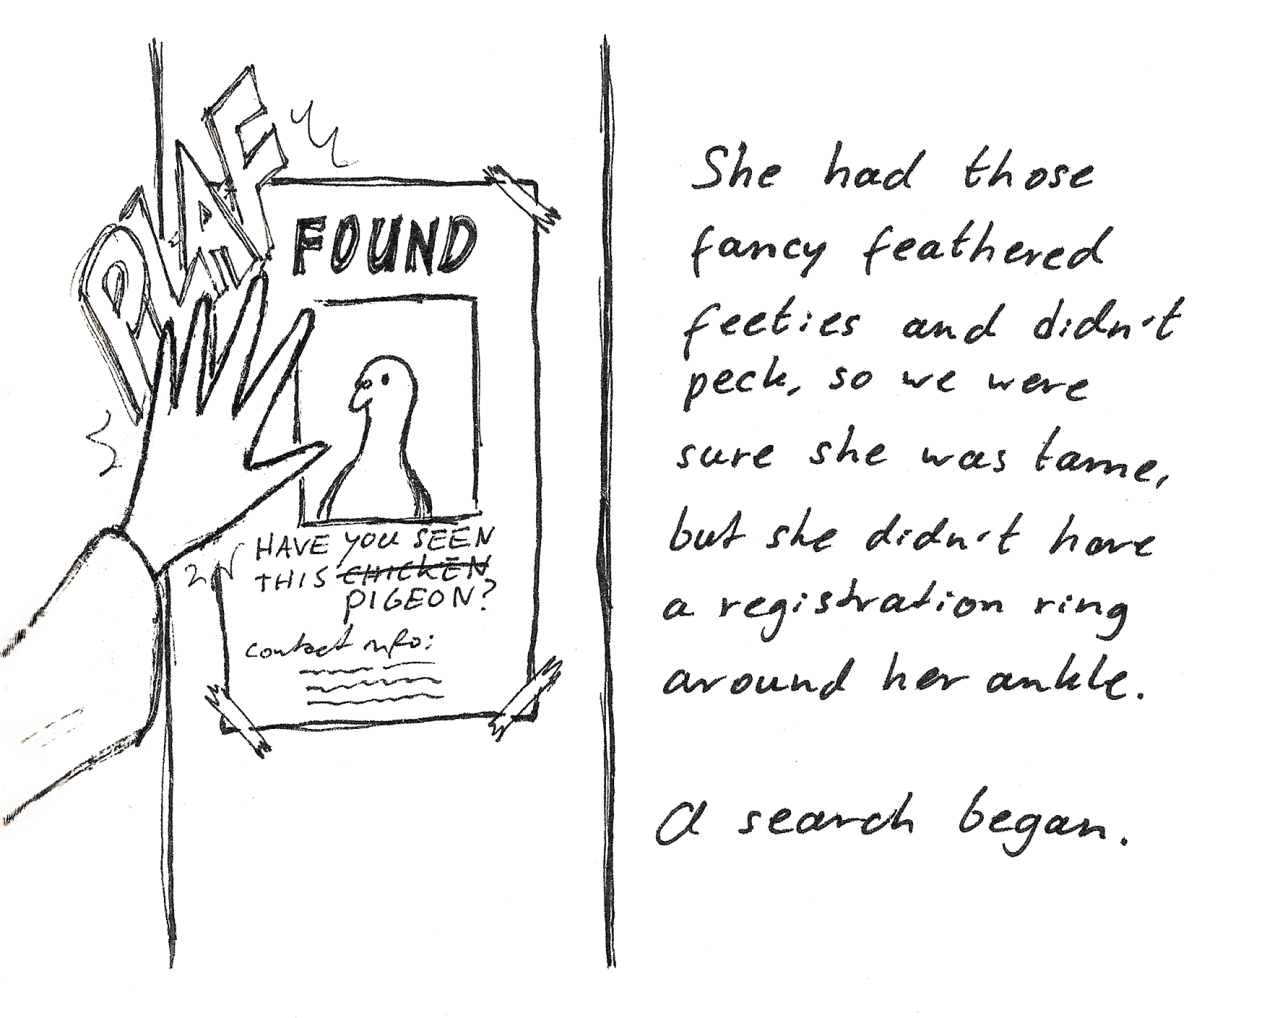 PLAF
FOUND
HAVE YOU SEEN
THIS CHICKEN
PIGEON?
contact info:
She had those
fancy feathered
feeties and didn't
peck, so we were
sure she was tame,
but she didn't have
a registration ring
around her ankle.
A search began.